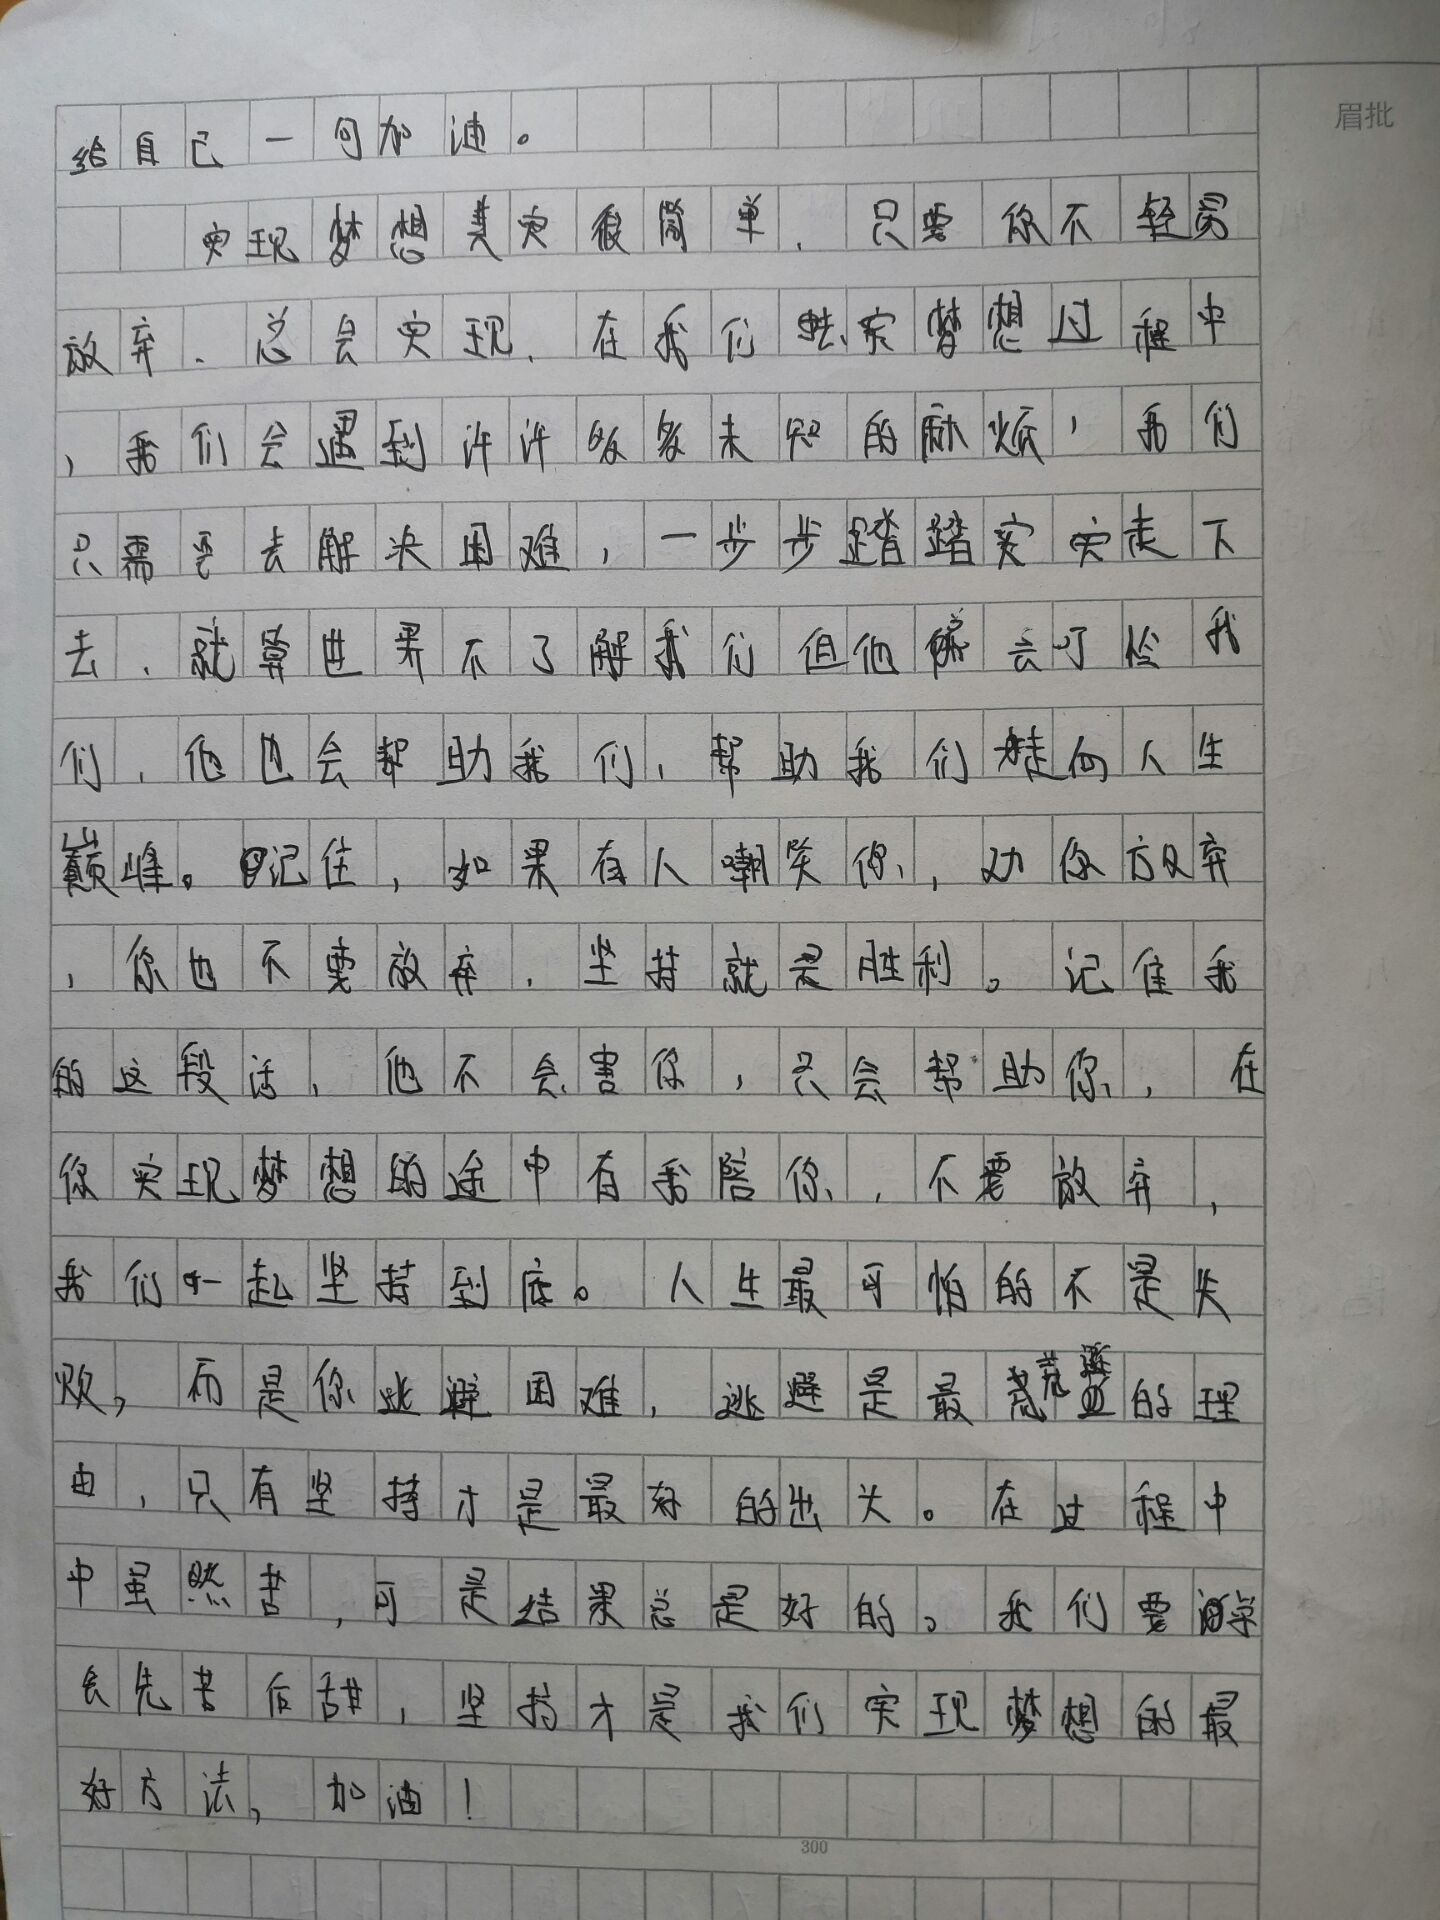 给自己一句加油。
眉批
实现梦想其实很简单，只要你不轻易
放弃、总会实现，在我们实梦想过程中
，我们会遇到许许多多未知的麻烦，我们
只需要去解决困难，一步步踏踏实实走下
去，就算世界不了解我们但他会可怜我
们，他也会帮助我们，帮助我们走向人生
巅峰。记住，如果有人嘲笑你，劝你放弃
，你也不要放弃，坚持就是胜利。记住我
的这段话，他不会害你，只会帮助你，在
你实现梦想的途中有我陪你，不要放弃，
我们一起坚持到底。人生最可怕的不是失
败，而是你逃避困难，逃避是最荒的理
由，只有坚持才是最好的出头。在过程中
中虽然苦，可是结果总是好的。我们要
会先苦后甜，坚持才是我们实现梦想的最
好方法，加油！
300